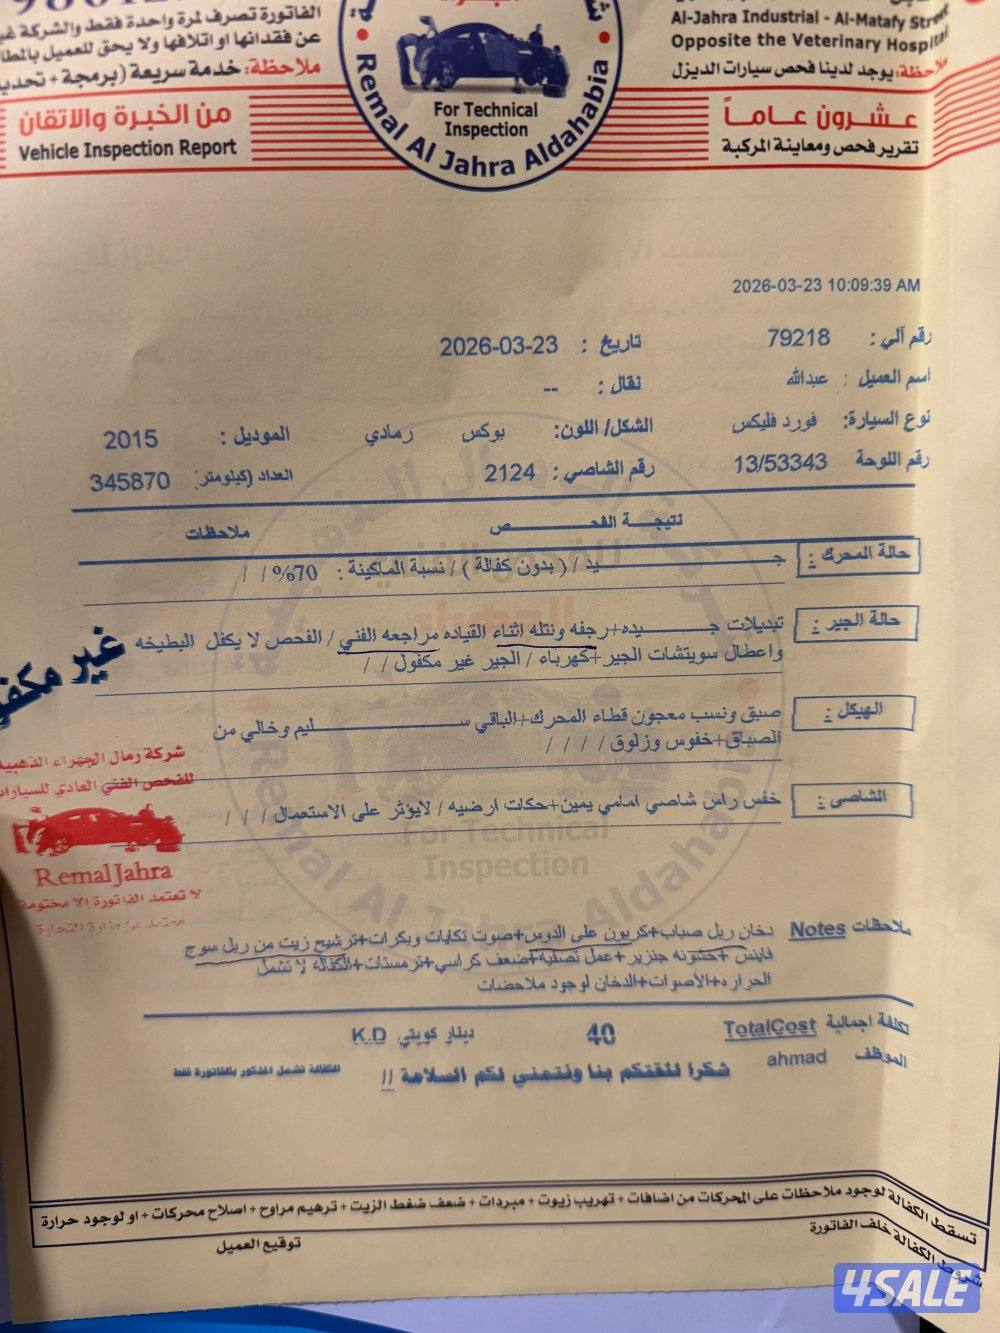 الفاتورة تصرف لمرة واحدة فقط والشركة غير
عن فقدانها او اتلافها ولا يحق للعميل بالمطا
ملاحظة: خدمة سريعة (برمجة + تحديد
Al-Jahra Industrial - Al-Matafy Street
Opposite the Veterinary Hospital
ملاحظة: يوجد لدينا فحص سيارات الديزل
من الخبرة والاتقان
Vehicle Inspection Report
For Technical
Inspection
Remal Al Jahra Aldahabia
عشرون عاماً
تقرير فحص ومعاينة المركبة
2026-03-23 10:09:39 AM
رقم آلي : 79218
تاريخ : 2026-03-23
اسم العميل : عبدالله
نقال : --
نوع السيارة: فورد فليكس
الشكل/ اللون: بوكس رمادي
الموديل : 2015
رقم اللوحة 13/53343
رقم الشاصي : 2124
العداد (كيلومتر): 345870
نتيجة الفحص
ملاحظات
حالة المحرك : جيد / ( بدون كفالة ) / نسبة الماكينة : 70% / /
حالة الجير : تبديلات جيده+رجفه ونتله اثناء القياده مراجعه الفني / الفحص لا يكفل البطيخه
واعطال سويتشات الجير+كهرباء / الجير غير مكفول / /
غير مكفو
الهيكل : صبق ونسب معجون قطاء المحرك+الباقي سليم وخالي من
الصباق+خفوس وزلوق / / / /
الشاصي : خفس راس شاصي امامي يمين+حكات ارضيه / لايؤثر على الاستعمال / / /
شركة رمال الجهراء الذهبية
للفحص الفني العادي للسيارات
Remal Jahra
لا تعتمد الفاتورة إلا مختومة
معتمد من وزارة التجارة
For Technical
Inspection
Remal Al Jahra Aldahabia
ملاحظات Notes دخان ربل صباب+كربون على الدوس+صوت تكايات وبكرات+ترشيح زيت من ربل سوج
فاينس +خشونه جنزير+عمل تصفية+ضعف كراسي+ترمستات+الكفالة لا تشمل
الحراره+الأصوات+الدخان لوجود ملاحضات
تكلفة اجمالية TotalCost 40 دينار كويتي K.D
الموظف ahmad
شكرا لثقتكم بنا ونتمني لكم السلامة //
الكفالة تشمل المذكور بالفاتورة فقط
تسقط الكفالة لوجود ملاحظات على المحركات من اضافات + تهريب زيوت + مبردات + ضعف ضغط الزيت + ترهيم مراوح + اصلاح محركات + او لوجود حرارة
شروط الكفالة خلف الفاتورة
توقيع العميل
4SALE